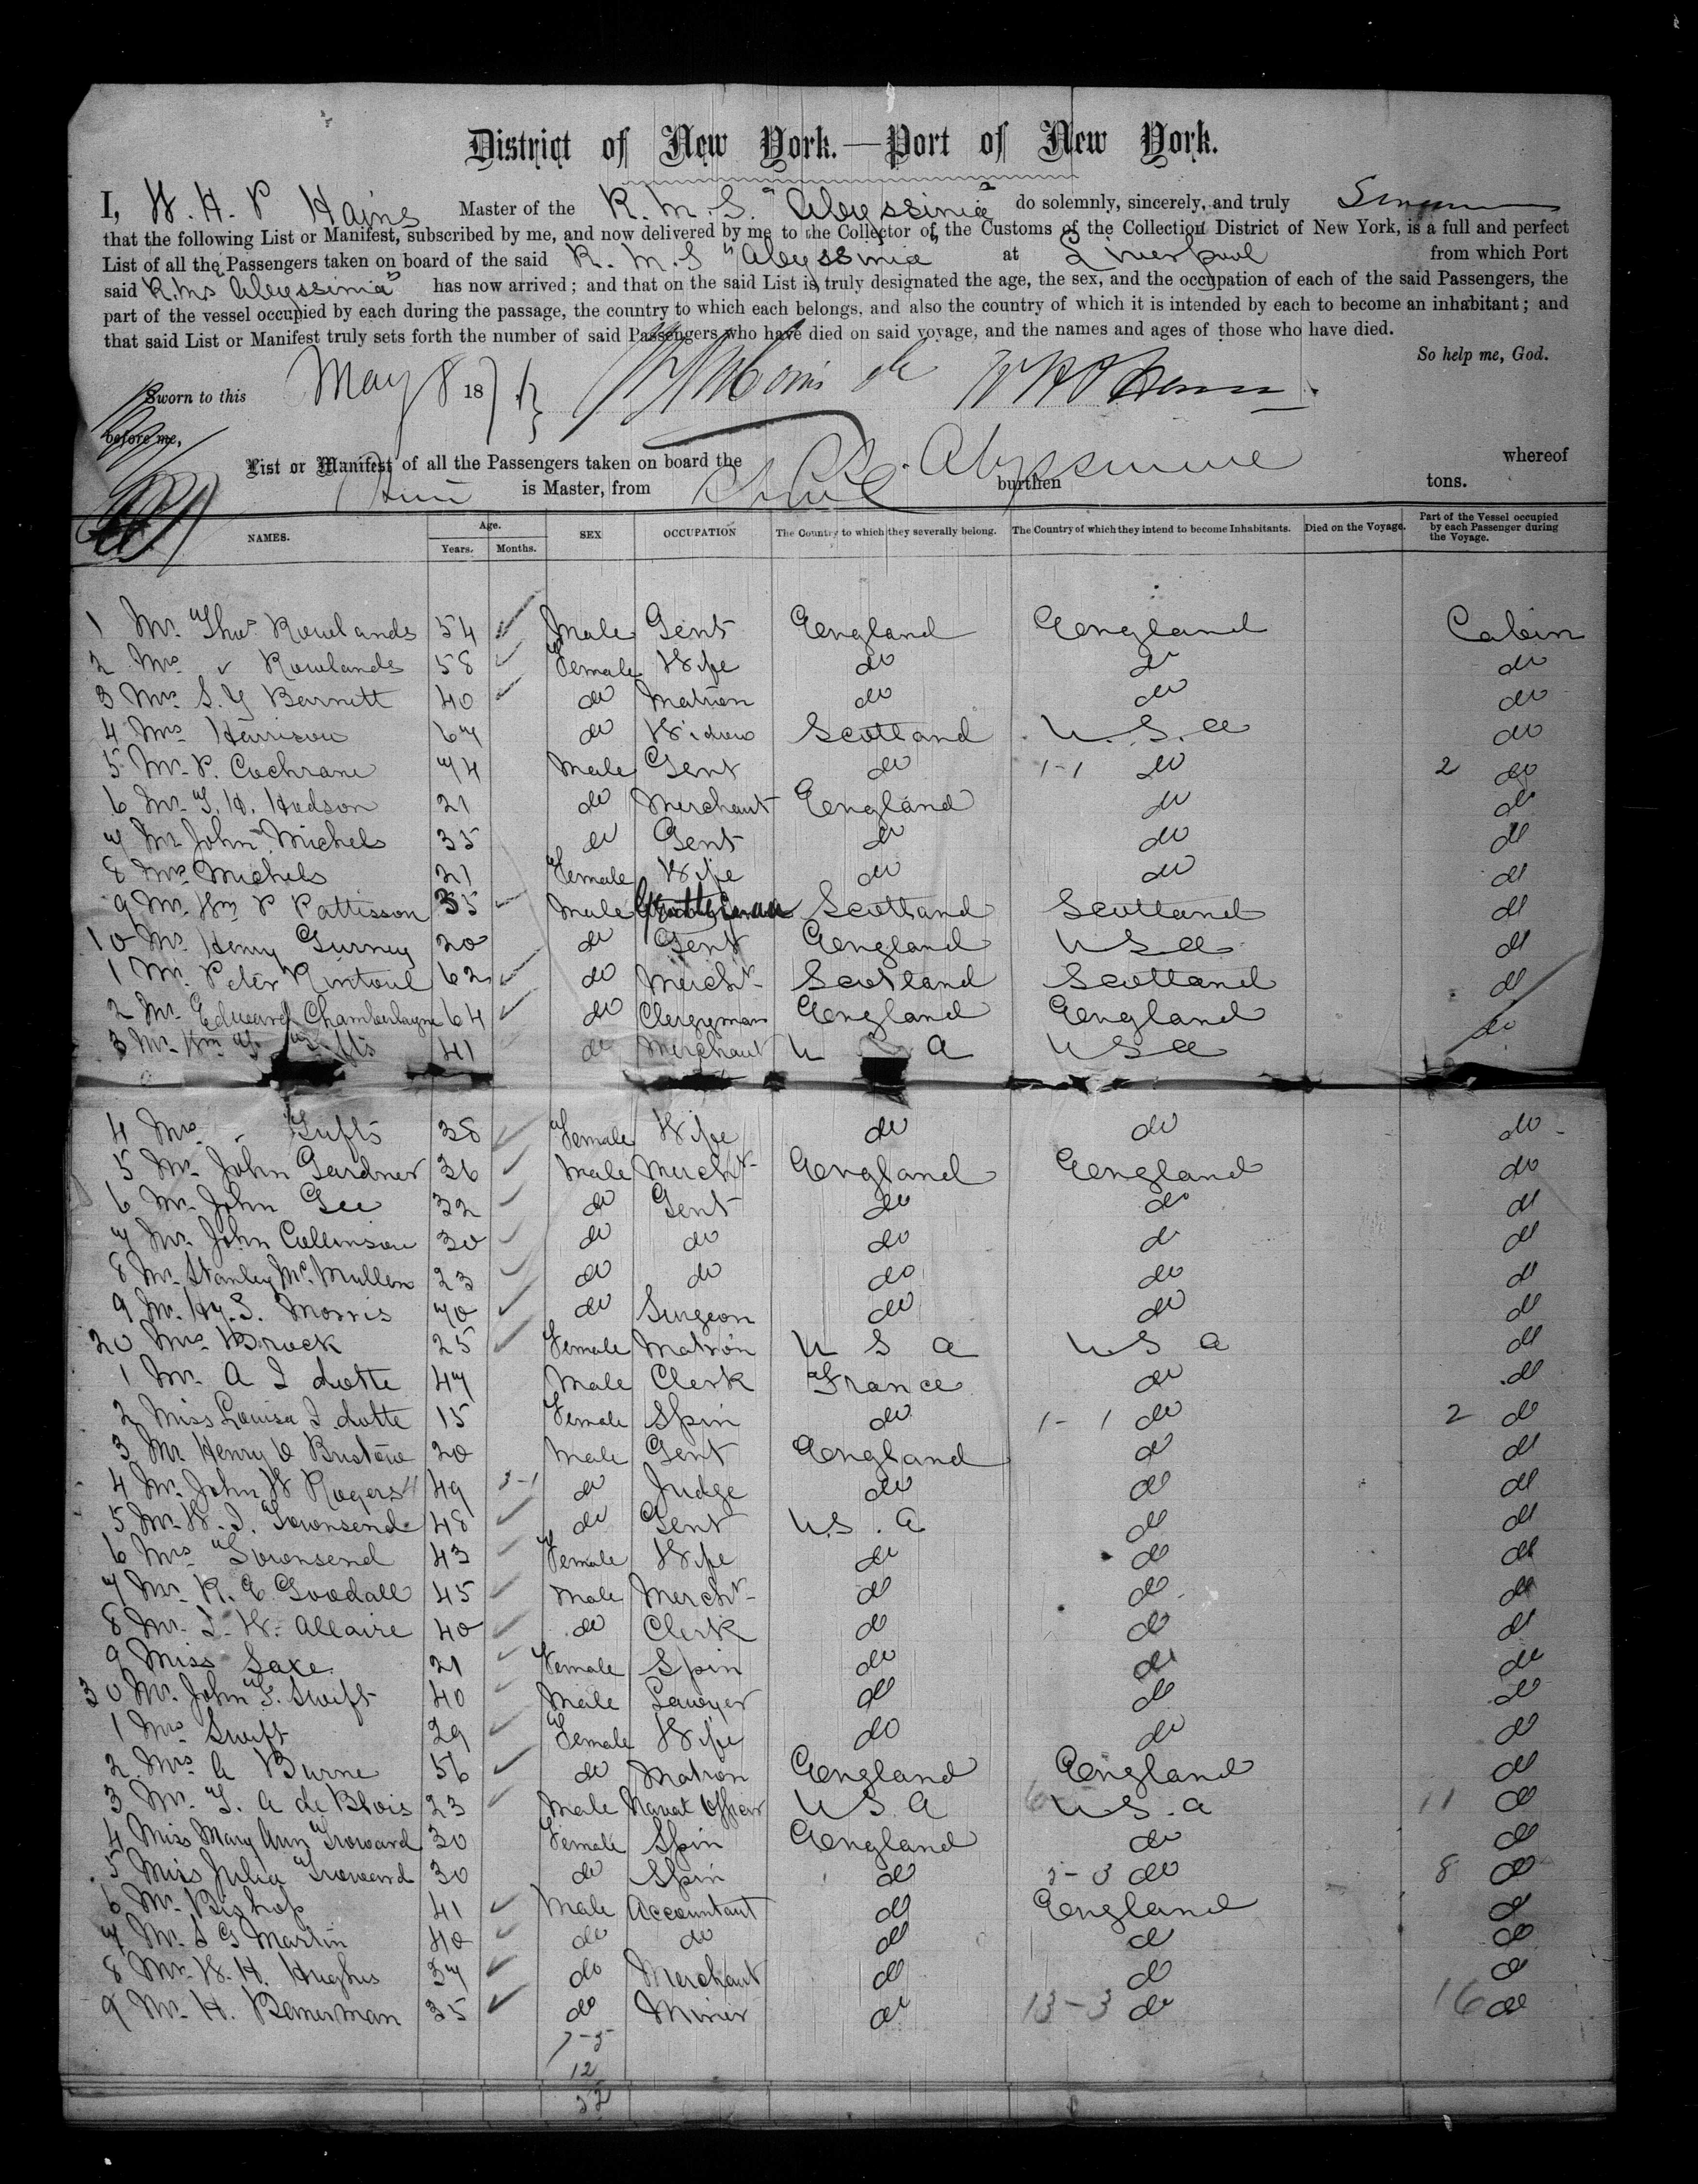 District of New York.—Port of New York.
I, W. H. P Hains Master of the R. M. S. "Abyssinia" do solemnly, sincerely, and truly
that the following List or Manifest, subscribed by me, and now delivered by me to the Collector of the Customs of the Collection District of New York, is a full and perfect
List of all the Passengers taken on board of the said R. M. S "Abyssinia" at Liverpool from which Port
said R.M.S Abyssinia" has now arrived; and that on the said List is truly designated the age, the sex, and the occupation of each of the said Passengers, the
part of the vessel occupied by each during the passage, the country to which each belongs, and also the country of which it is intended by each to become an inhabitant; and
that said List or Manifest truly sets forth the number of said Passengers who have died on said voyage, and the names and ages of those who have died.
So help me, God.
Sworn to this May 8 187
before me,
List or Manifest of all the Passengers taken on board the Abyssinia whereof
is Master, from burthen tons.
NAMES. Age. Years. Months. SEX OCCUPATION The Country to which they severally belong. The Country of which they intend to become Inhabitants. Died on the Voyage. Part of the Vessel occupied by each Passenger during the Voyage.
1 Mr. Thos Rowlands 54 Male Gent England England Cabin
2 Mrs " Rowlands 58 Female Wife do do do
3 Mrs S. Y Barnett 40 do Matron do do do
4 Mrs Harrison 67 do Widow Scotland U.S.A do
5 Mr P. Cochrane 74 Male Gent do 1-1 do 2 do
6 Mr T. H. Hudson 21 do Merchant England do do
7 Mr John Michels 35 do Gent do do do
8 Mrs Michels 21 Female Wife do do do
9 Mr. Wm P Pattisson 35 Male Gentleman Scotland Scotland do
10 Mr Henry Gurney 20 do Gent England USA do
1 Mr. Peter Rintoul 62 do Mercht Scotland Scotland do
2 Mr. Edward Chamberlayne 64 do Clergyman England England do
3 Mr Wm 41 do Merchant U A USA
4 Mrs " Tufts 38 Female Wife do do do
5 Mr John Gardner 36 Male Mercht England England do
6 Mr John Gee 32 do Gent do do do
7 Mr John Collinson 30 do do do do do
8 Mr Stanley McMullen 23 do do do do do
9 Mr. Hy. S. Morris 70 do Surgeon do do do
20 Mrs Brock 25 Female Matron U S A U S A do
1 Mr A I dotte 47 Male Clerk France do do
2 Miss Louisa I dotte 15 Female Spin do 1-1 do 2 do
3 Mr Henry O Bristowe 20 Male Gent England do do
4 Mr. John W Rogers 49 do Judge do do do
5 Mr. W. I. Townsend 48 do Gent U.S.A do do
6 Mrs Townsend 43 Female Wife do do do
7 Mr. R. E Goodall 45 Male Mercht do do do
8 Mr. I. W. Allaire 40 do Clerk do do do
9 Miss Saxe 21 Female Spin do do do
30 Mr. John F. Swift 40 Male Lawyer do do do
1 Mrs Swift 29 Female Wife do do do
2 Mrs A Burne 56 do Matron England England do
3 Mr. T. A de Blois 23 Male Naval Officer U S A U S. A 11 do
4 Miss Mary Ann Troward 30 Female Spin England do do
5 Miss Julia Troward 30 do Spin do do 8 do
6 Mr Bishop 41 Male Accountant do England do
7 Mr. S G Martin 40 do do do do do
8 Mr. W. H. Hughes 37 do Merchant do do do
9 Mr. H. Bemerman 35 do Miner do 13-3 do 16 do
7-5
12